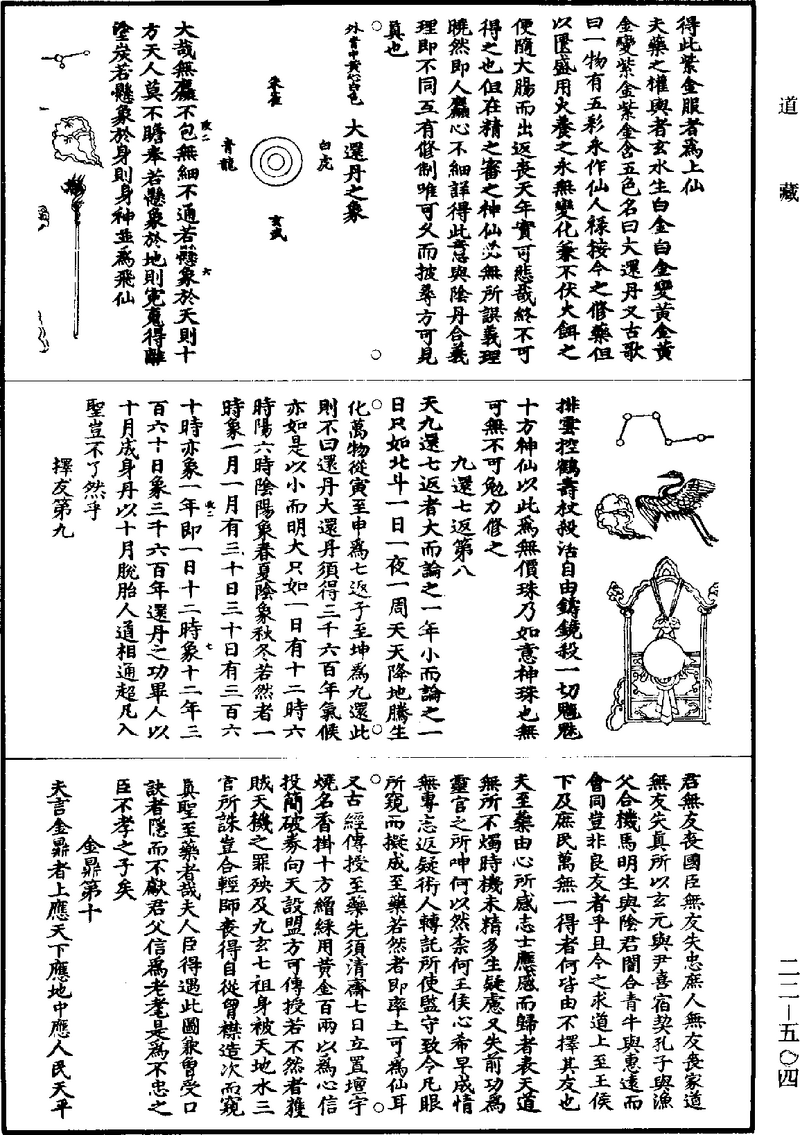 道藏
二二—五〇四
得此紫金服者爲上仙
夫藥之權輿者玄水生白金白金變黃金黃
金變紫金紫金含五色名曰大還丹又古歌
曰一物有五彩永作仙人祿按今之修藥但
以匱盛用火養之永無變化兼不伏火餌之
便隨大腸而出返喪天年實可悲哉終不可
得之也但在精之審之神仙必無所誤義理
曉然即人麤心不細詳得此意與陰丹合義
理即不同互有修制唯可久而披尋方可見
眞也
外青中黃心白色
大還丹之象
朱雀
白虎
青龍
玄武
大哉無麤不包無細不通若懸象於天則十
方天人莫不瞻奉若懸象於地則寃䰟得離
塗炭若懸象於身則身神並爲飛仙
排雲控鶴壽杖殺活自由鑄鏡殺一切魍魅
十方神仙以此爲無價珠乃如意神珠也無
可無不可勉力修之
九還七返第八
夫九還七返者大而論之一年小而論之一
日只如北斗一日一夜一周天天降地騰生
化萬物從寅至申爲七返子至坤爲九還此
則不曰還丹大還丹須得三千六百年氣候
亦如是以小而明大只如一日有十二時六
時陽六時陰陽象春夏陰象秋冬若然者一
時象一月一月有三十日三十日有三百六
十時亦象一年即一日十二時象十二年三
百六十日象三千六百年還丹之功畢人以
十月成身丹以十月脫胎人道相通超凡入
聖豈不了然乎
擇友第九
君無友喪國臣無友失忠庶人無友喪家道
無友失真所以玄元與尹喜宿契孔子與漁
父合機馬明生與陰君闇合青牛與惠遠而
會同豈非良友者乎且今之求道上至王侯
下及庶民萬無一得者何皆由不擇其友也
夫至藥由心所感志士應感而歸者表天道
無所不燭時機未精多生疑慮又失前功爲
靈官之所呻何以然柰何王侯心希早成情
無專志返疑術人轉託所使監守致令凡眼
所窺而擬成至藥若然者即率土可爲仙耳
又古經傳授至藥先須清齋七日立置壇宇
燒名香掛十方繒綵用黃金百兩以爲心信
投簡破券向天設盟方可傳授若不然者獲
賊天機之罪殃及九玄七祖身被天地水三
官所誅豈合輕師喪得自從曾襟造次而窺
眞聖至藥者哉夫人臣得遇此圖兼曾受口
訣者隱而不獻君父信爲老耄是爲不忠之
臣不孝之子矣
金鼎第十
夫言金鼎者上應天下應地中應人民天平